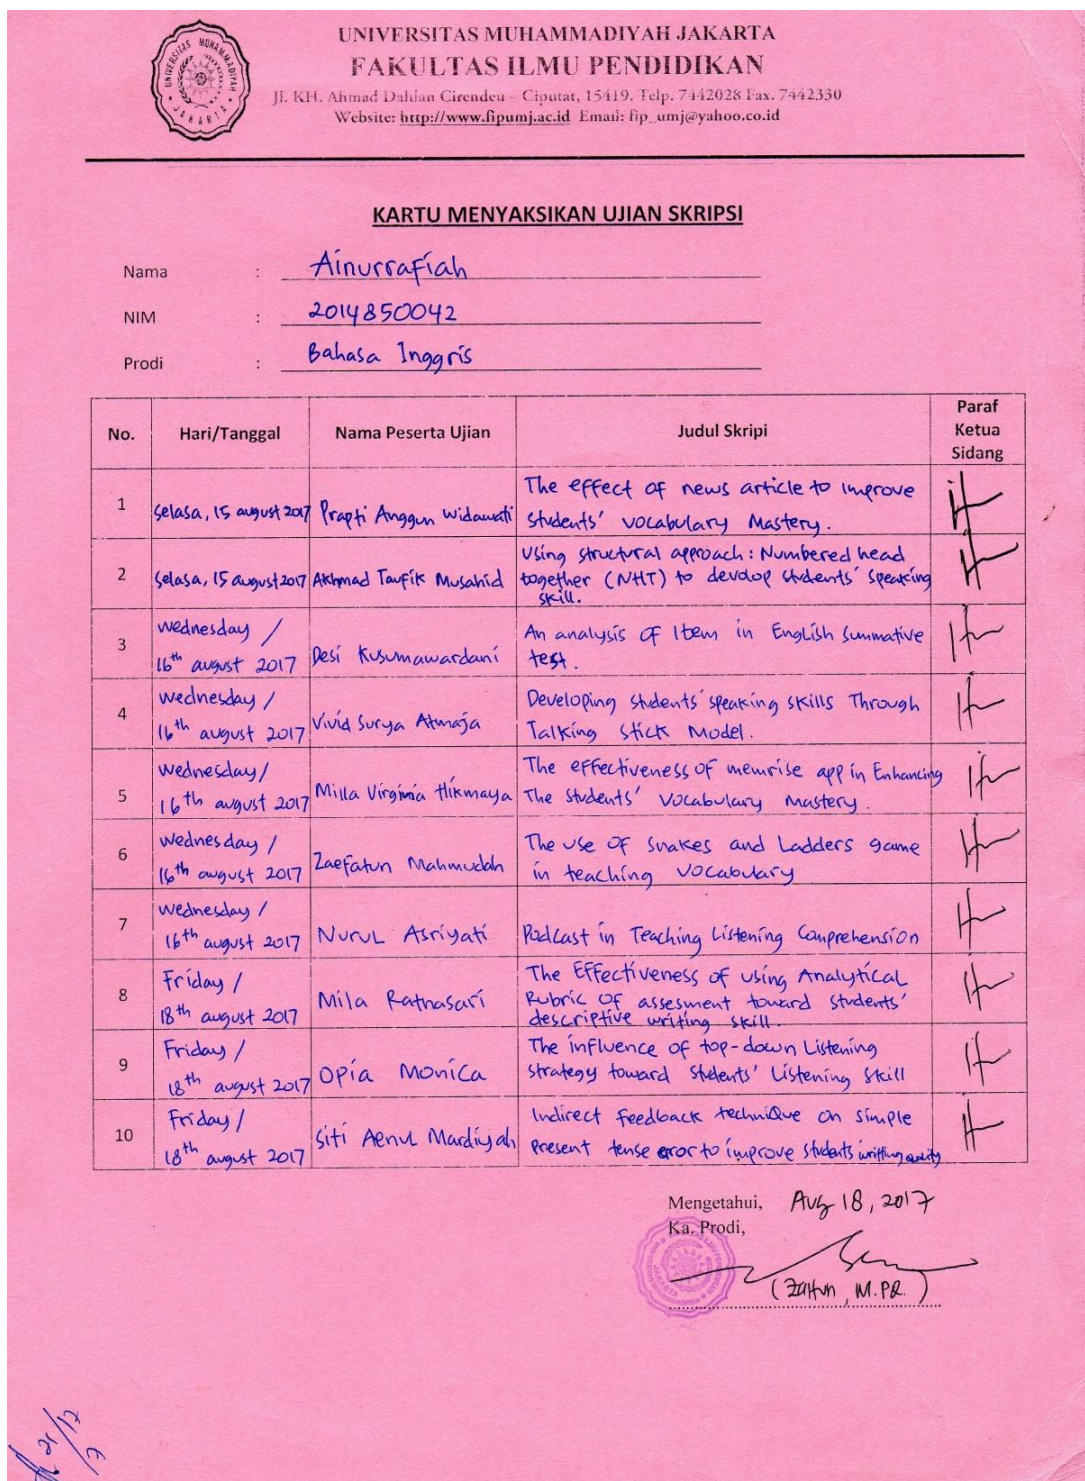 UNIVERSITAS MUHAMMADIYAH JAKARTA
FAKULTAS ILMU PENDIDIKAN
Jl. KH. Ahmad Dahlan Cirendeu – Ciputat, 15419. Telp. 7442028 Fax. 7442330
Website: http://www.fipumj.ac.id Email: fip_umj@yahoo.co.id
UNIVERSITAS MUHAMMADIYAH JAKARTA
KARTU MENYAKSIKAN UJIAN SKRIPSI
Nama : Ainurrafiah
NIM : 2014850042
Prodi : Bahasa Inggris
No. Hari/Tanggal Nama Peserta Ujian Judul Skripi Paraf Ketua Sidang
1 Selasa, 15 august 2017 Prapti Anggun Widawati The effect of news article to improve
students' vocabulary Mastery.
2 Selasa, 15 august 2017 Akhmad Taufik Musahid Using structural approach: Numbered head
together (NHT) to devolop students' speaking
skill.
3 Wednesday / 16th august 2017 Desi Kusumawardani An analysis of Item in English Summative
test.
4 Wednesday / 16th august 2017 Vivid Surya Atmaja Developing students' speaking skills Through
Talking Stick Model.
5 Wednesday / 16th august 2017 Milla Virginia Hikmaya The effectiveness of memrise app in Enhancing
The students' vocabulary Mastery.
6 Wednesday / 16th august 2017 Zaefatun Mahmudah The use of Snakes and Ladders game
in teaching vocabulary
7 Wednesday / 16th august 2017 Nurul Asriyati Podcast in Teaching Listening Comprehension
8 Friday / 18th august 2017 Mila Ratnasari The Effectiveness of using Analytical
Rubric of assesment toward students'
descriptive writing skill.
9 Friday / 18th august 2017 Opia Monica The influence of top-down Listening
strategy toward students' Listening Skill
10 Friday / 18th august 2017 Siti Aenul Mardiyah Indirect feedback technique on simple
present tense eror to improve students writting quality
Mengetahui, Aug 18, 2017
Ka. Prodi,